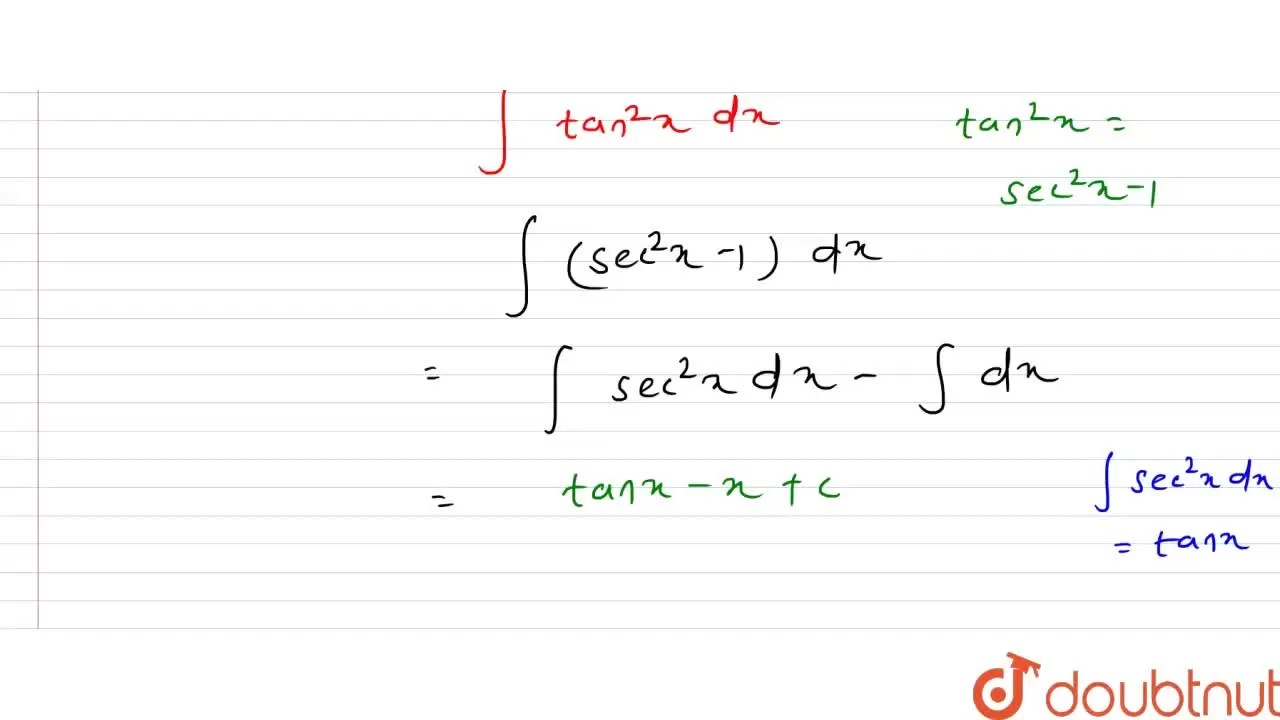 ∫ tan²x dx
tan²x =
sec²x-1
∫ (sec²x -1) dx
= ∫ sec²x dx - ∫ dx
= tanx - x + c
∫ sec²x dx
= tanx
doubtnut